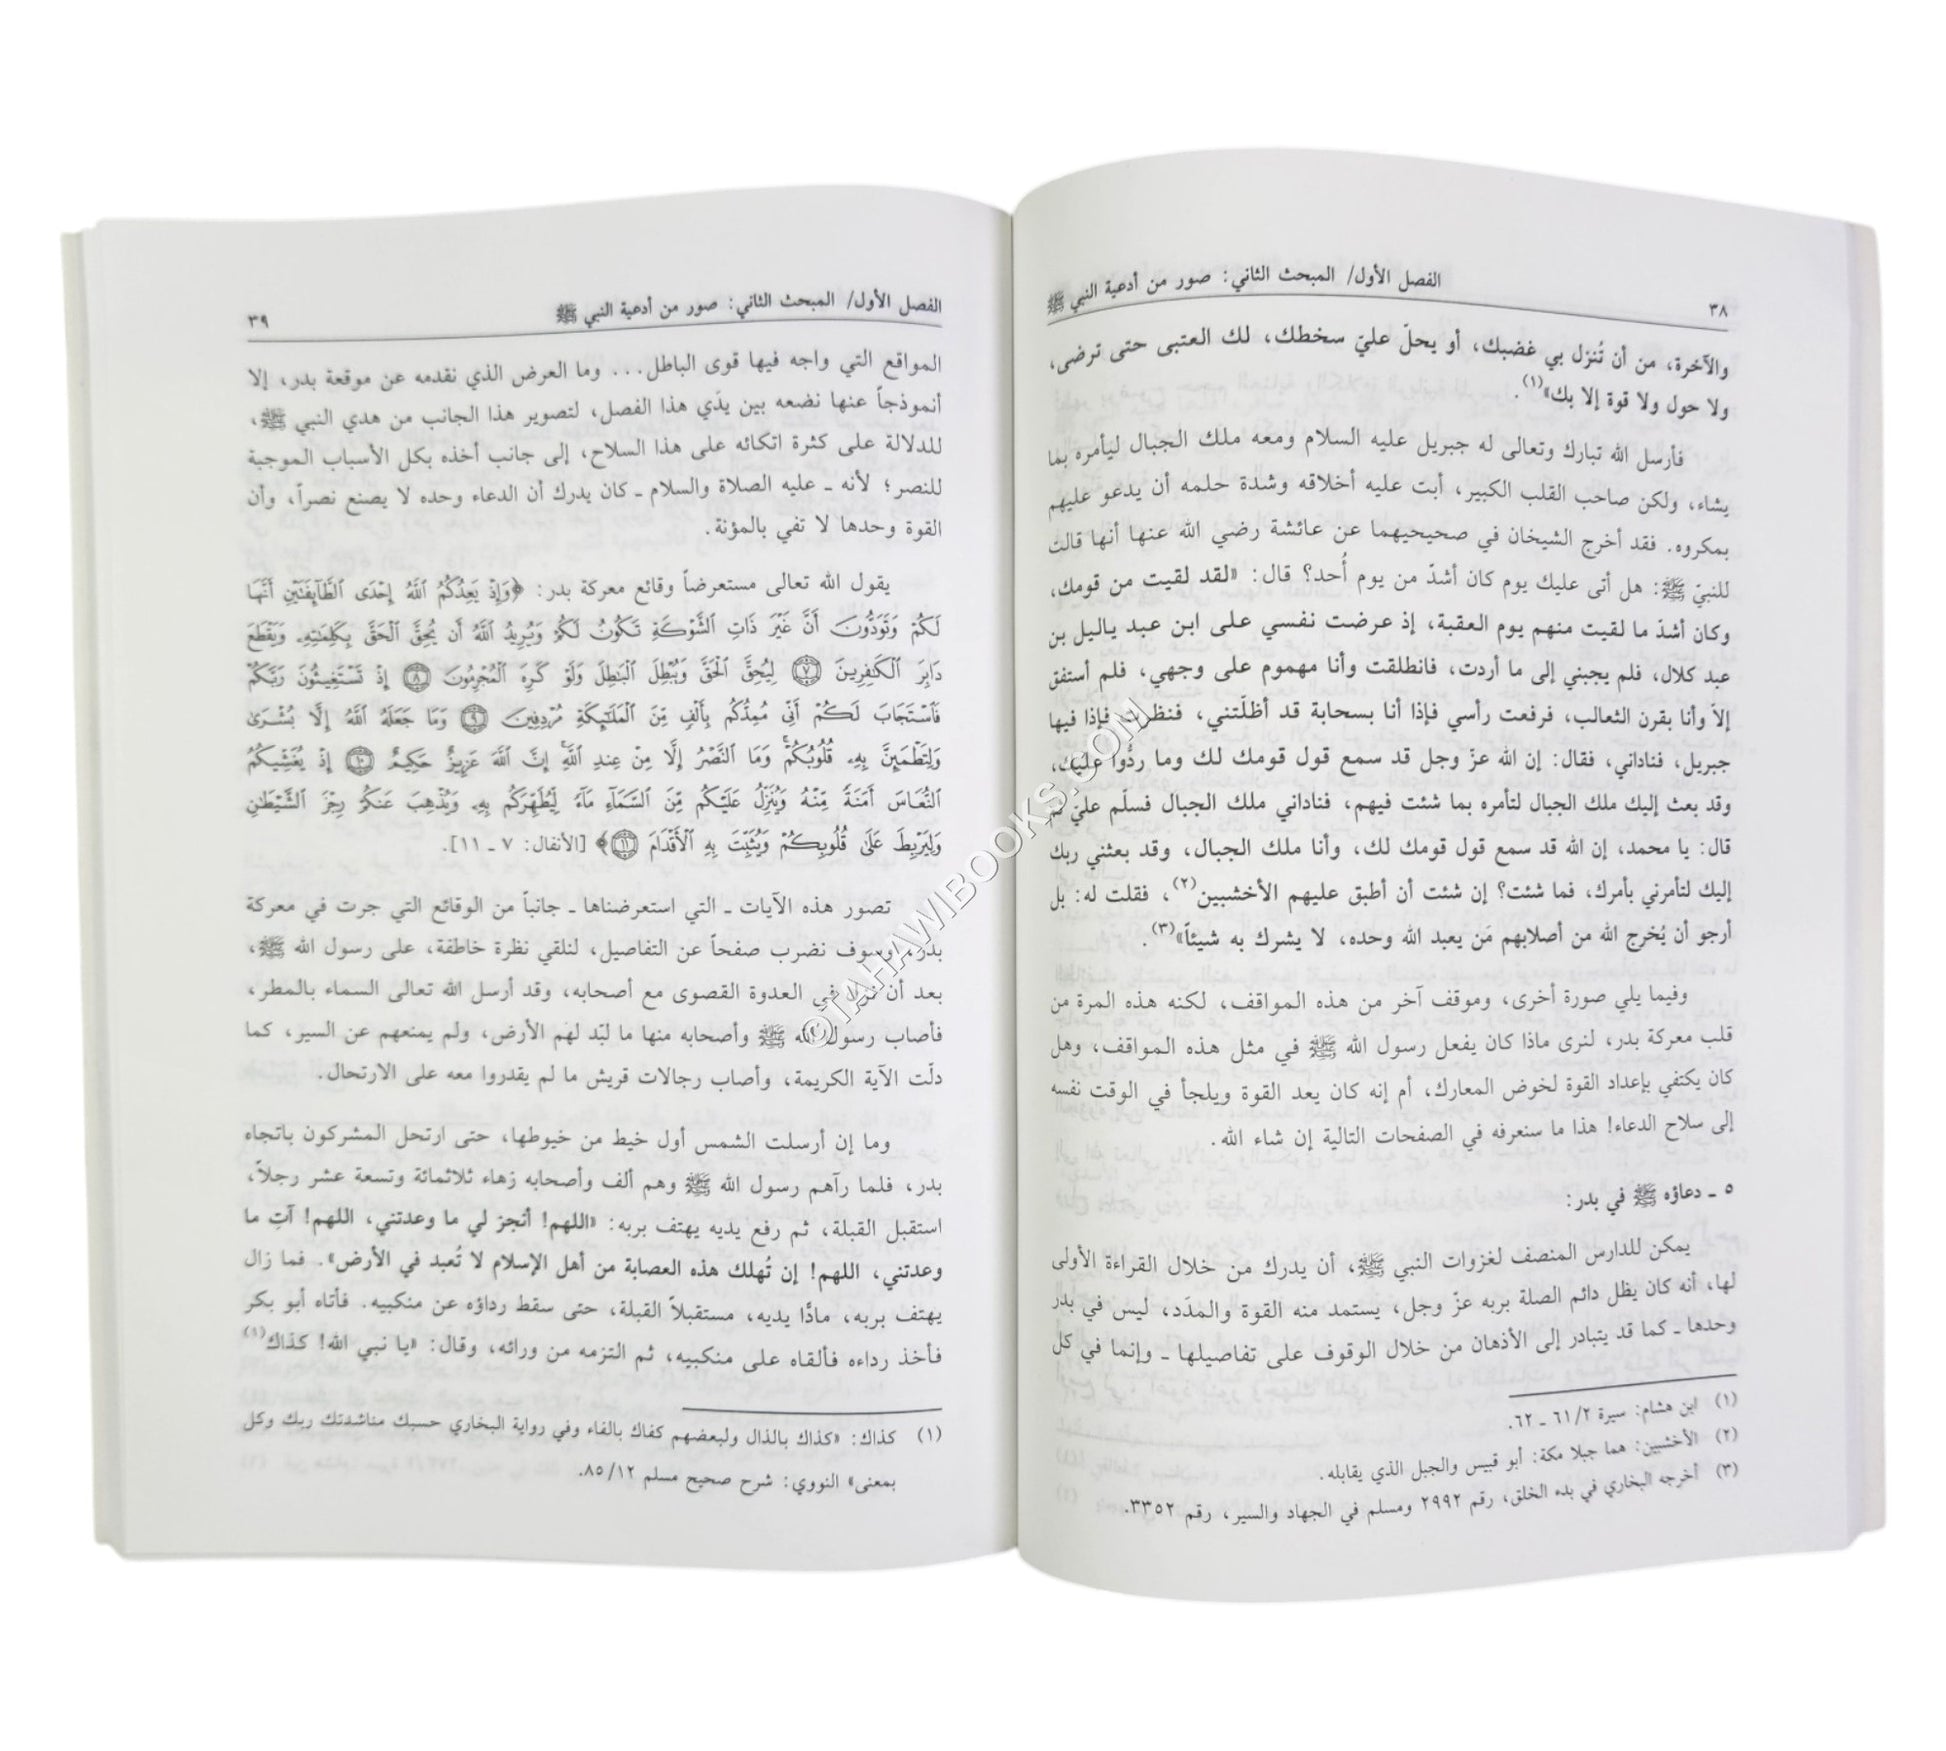 ٣٨ الفصل الأول/ المبحث الثاني: صور من أدعية النبي ﷺ
والآخرة، من أن تُنزل بي غضبك، أو يحلّ عليّ سخطك، لك العتبى حتى ترضى،
ولا حول ولا قوة إلا بك»(١).
فأرسل الله تبارك وتعالى له جبريل عليه السلام ومعه ملك الجبال ليأمره بما
يشاء، ولكن صاحب القلب الكبير، أبت عليه أخلاقه وشدة حلمه أن يدعو عليهم
بمكروه. فقد أخرج الشيخان في صحيحيهما عن عائشة رضي الله عنها أنها قالت
للنبيّ ﷺ: هل أتى عليك يوم كان أشدّ من يوم أُحد؟ قال: «لقد لقيت من قومك،
وكان أشدّ ما لقيت منهم يوم العقبة، إذ عرضت نفسي على ابن عبد ياليل بن
عبد كلال، فلم يجبني إلى ما أردت، فانطلقت وأنا مهموم على وجهي، فلم أستفق
إلاّ وأنا بقرن الثعالب، فرفعت رأسي فإذا أنا بسحابة قد أظلّتني، فنظرت فإذا فيها
جبريل، فناداني، فقال: إن الله عزّ وجل قد سمع قول قومك لك وما ردُّوا عليك،
وقد بعث إليك ملك الجبال لتأمره بما شئت فيهم، فناداني ملك الجبال فسلّم عليّ ثم
قال: يا محمد، إن الله قد سمع قول قومك لك، وأنا ملك الجبال، وقد بعثني ربك
إليك لتأمرني بأمرك، فما شئت؟ إن شئت أن أطبق عليهم الأخشبين(٢)، فقلت له: بل
أرجو أن يُخرج الله من أصلابهم مَن يعبد الله وحده، لا يشرك به شيئاً»(٣).
وفيما يلي صورة أخرى، وموقف آخر من هذه المواقف، لكنه هذه المرة من
قلب معركة بدر، لنرى ماذا كان يفعل رسول الله ﷺ في مثل هذه المواقف، وهل
كان يكتفي بإعداد القوة لخوض المعارك، أم إنه كان يعد القوة ويلجأ في الوقت نفسه
إلى سلاح الدعاء! هذا ما سنعرفه في الصفحات التالية إن شاء الله.
٥ ـ دعاؤه ﷺ في بدر:
يمكن للدارس المنصف لغزوات النبي ﷺ، أن يدرك من خلال القراءة الأولى
لها، أنه كان يظل دائم الصلة بربه عزّ وجل، يستمد منه القوة والمدَد، ليس في بدر
وحدها ـ كما قد يتبادر إلى الأذهان من خلال الوقوف على تفاصيلها ـ وإنما في كل
(١) ابن هشام: سيرة ٦١/٢ ـ ٦٢.
(٢) الأخشبين: هما جبلا مكة: أبو قبيس والجبل الذي يقابله.
(٣) أخرجه البخاري في بدء الخلق، رقم ٢٩٩٢ ومسلم في الجهاد والسير، رقم ٣٣٥٢.
الفصل الأول/ المبحث الثاني: صور من أدعية النبي ﷺ ٣٩
المواقع التي واجه فيها قوى الباطل... وما العرض الذي نقدمه عن موقعة بدر، إلا
أنموذجاً عنها نضعه بين يدَي هذا الفصل، لتصوير هذا الجانب من هدي النبي ﷺ،
للدلالة على كثرة اتكائه على هذا السلاح، إلى جانب أخذه بكل الأسباب الموجبة
للنصر؛ لأنه ـ عليه الصلاة والسلام ـ كان يدرك أن الدعاء وحده لا يصنع نصراً، وأن
القوة وحدها لا تفي بالمؤنة.
يقول الله تعالى مستعرضاً وقائع معركة بدر: ﴿وَإِذْ يَعِدُكُمُ ٱللَّهُ إِحْدَى ٱلطَّآئِفَتَيْنِ أَنَّهَا
لَكُمْ وَتَوَدُّونَ أَنَّ غَيْرَ ذَاتِ ٱلشَّوْكَةِ تَكُونُ لَكُمْ وَيُرِيدُ ٱللَّهُ أَن يُحِقَّ ٱلْحَقَّ بِكَلِمَٰتِهِۦ وَيَقْطَعَ
دَابِرَ ٱلْكَٰفِرِينَ ٧ لِيُحِقَّ ٱلْحَقَّ وَيُبْطِلَ ٱلْبَٰطِلَ وَلَوْ كَرِهَ ٱلْمُجْرِمُونَ ٨ إِذْ تَسْتَغِيثُونَ رَبَّكُمْ
فَٱسْتَجَابَ لَكُمْ أَنِّي مُمِدُّكُم بِأَلْفٍ مِّنَ ٱلْمَلَٰٓئِكَةِ مُرْدِفِينَ ٩ وَمَا جَعَلَهُ ٱللَّهُ إِلَّا بُشْرَىٰ
وَلِتَطْمَئِنَّ بِهِۦ قُلُوبُكُمْ ۚ وَمَا ٱلنَّصْرُ إِلَّا مِنْ عِندِ ٱللَّهِ ۚ إِنَّ ٱللَّهَ عَزِيزٌ حَكِيمٌ ١٠ إِذْ يُغَشِّيكُمُ
ٱلنُّعَاسَ أَمَنَةً مِّنْهُ وَيُنَزِّلُ عَلَيْكُم مِّنَ ٱلسَّمَآءِ مَآءً لِّيُطَهِّرَكُم بِهِۦ وَيُذْهِبَ عَنكُمْ رِجْزَ ٱلشَّيْطَٰنِ
وَلِيَرْبِطَ عَلَىٰ قُلُوبِكُمْ وَيُثَبِّتَ بِهِ ٱلْأَقْدَامَ ١١﴾ [الأنفال: ٧ ـ ١١].
تصور هذه الآيات ـ التي استعرضناها ـ جانباً من الوقائع التي جرت في معركة
بدر، وسوف نضرب صفحاً عن التفاصيل، لنلقي نظرة خاطفة، على رسول الله ﷺ،
بعد أن نزل في العدوة القصوى مع أصحابه، وقد أرسل الله تعالى السماء بالمطر،
فأصاب رسول الله ﷺ وأصحابه منها ما لبّد لهم الأرض، ولم يمنعهم عن السير، كما
دلّت الآية الكريمة، وأصاب رجالات قريش ما لم يقدروا معه على الارتحال.
وما إن أرسلت الشمس أول خيط من خيوطها، حتى ارتحل المشركون باتجاه
بدر، فلما رآهم رسول الله ﷺ وهم ألف وأصحابه زهاء ثلاثمائة وتسعة عشر رجلاً،
استقبل القبلة، ثم رفع يديه يهتف بربه: «اللهم! أنجز لي ما وعدتني، اللهم! آتِ ما
وعدتني، اللهم! إن تُهلك هذه العصابة من أهل الإسلام لا تُعبد في الأرض». فما زال
يهتف بربه، مادًّا يديه، مستقبلاً القبلة، حتى سقط رداؤه عن منكبيه. فأتاه أبو بكر
فأخذ رداءه فألقاه على منكبيه، ثم التزمه من ورائه، وقال: «يا نبي الله! كذاك(١)
(١) كذاك: «كذاك بالذال ولبعضهم كفاك بالفاء وفي رواية البخاري حسبك مناشدتك ربك وكل
بمعنى» النووي: شرح صحيح مسلم ٨٥/١٢.
©TAHAWIBOOKS.COM